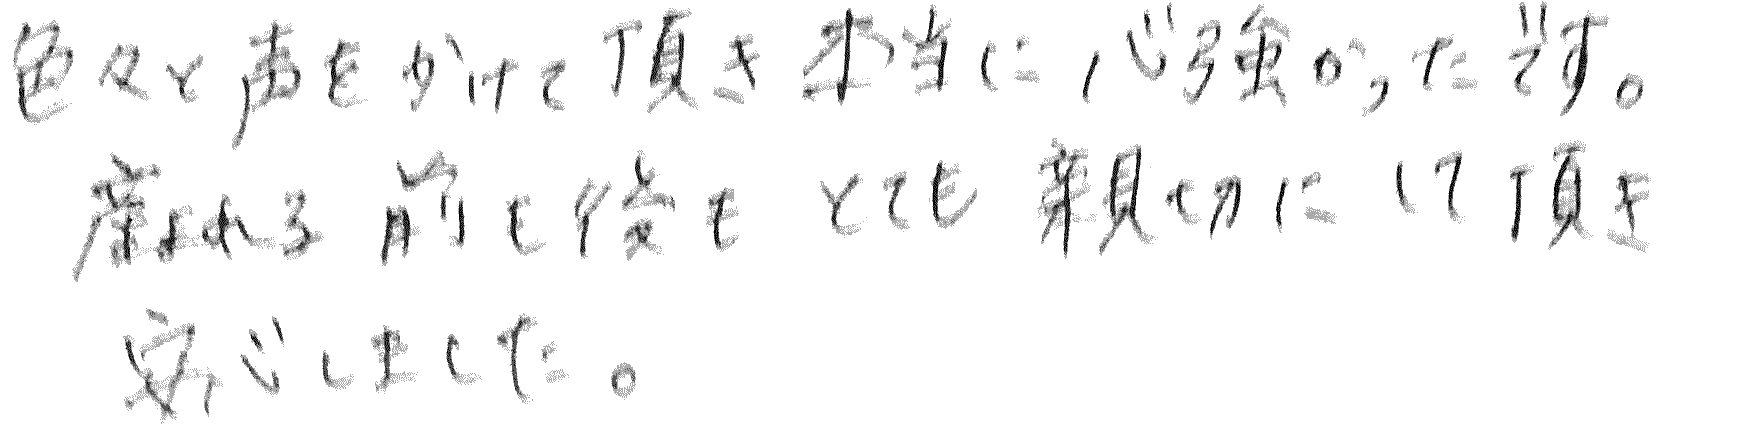 色々と声をかけて頂き本当に心強かったです。
産まれる前も後もとても親切にして頂き
安心しました。